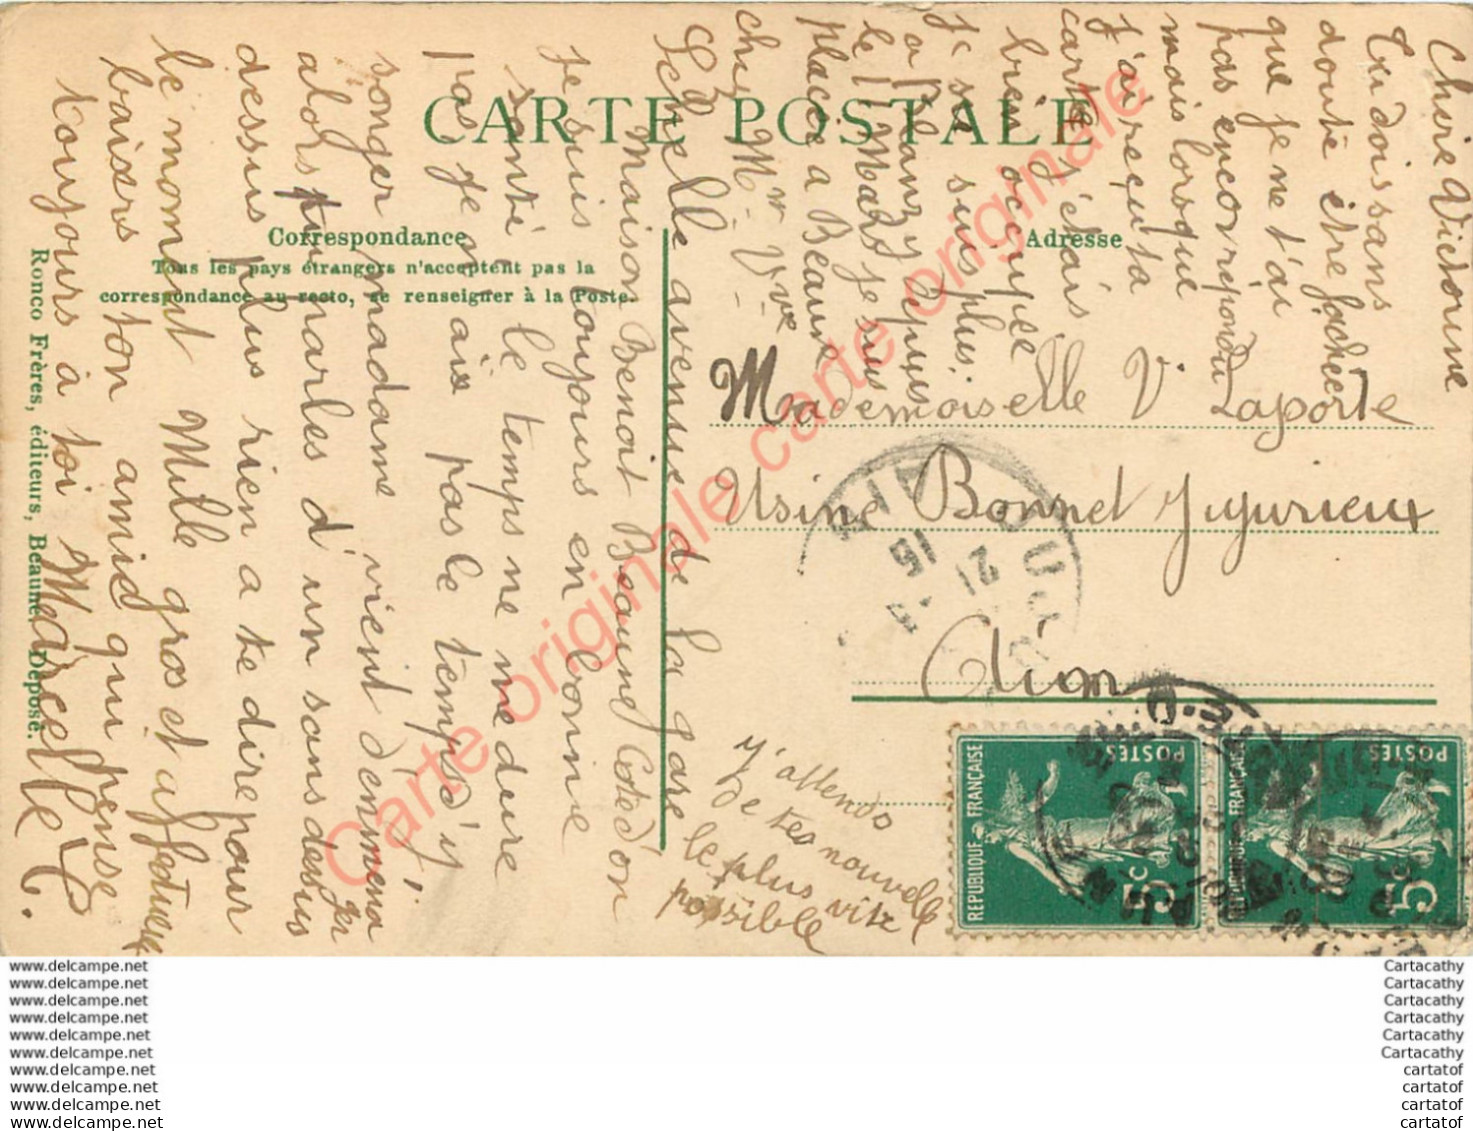 CARTE POSTALE
Correspondance
Tous les pays étrangers n'acceptent pas la
correspondance au recto, se renseigner à la Poste.
Adresse
Ronco Frères, éditeurs, Beaune. Déposé.
Chère Victorine
Tu dois sans
doute être fâchée
que je ne t'ai
pas encor répondu
mais lorsque
j'ai reçu ta
carte j'étais
bien occupée
je se suis plus.
a Pranzy depuis
le 11 Mars je suis
placée a Beaune
chez Mme Vve
Seguelle avenue de la gare
Maison Benoit Beaune Cote d'or
je suis toujours en bonne
santé le temps ne me dure
pas je n'ais pas le temps d'y
songer madame vient d'emmenager
alors tu parles d'un sans dessus
dessous plus rien a te dire pour
le moment Mille gros et affectueux
baisers ton amie qui pense
toujours à toi Marcelle
Mademoiselle V. Laporte
Usine Bonnet Jujurieux
Ain
J'attends
de tes nouvelle
le plus vite
possible
REPUBLIQUE FRANÇAISE
POSTES
5c
REPUBLIQUE FRANÇAISE
POSTES
5c
Carte originale Carte originale Carte originale
www.delcampe.net
www.delcampe.net
www.delcampe.net
www.delcampe.net
www.delcampe.net
www.delcampe.net
www.delcampe.net
www.delcampe.net
www.delcampe.net
www.delcampe.net
Cartacathy
Cartacathy
Cartacathy
Cartacathy
Cartacathy
Cartacathy
cartatof
cartatof
cartatof
cartatof